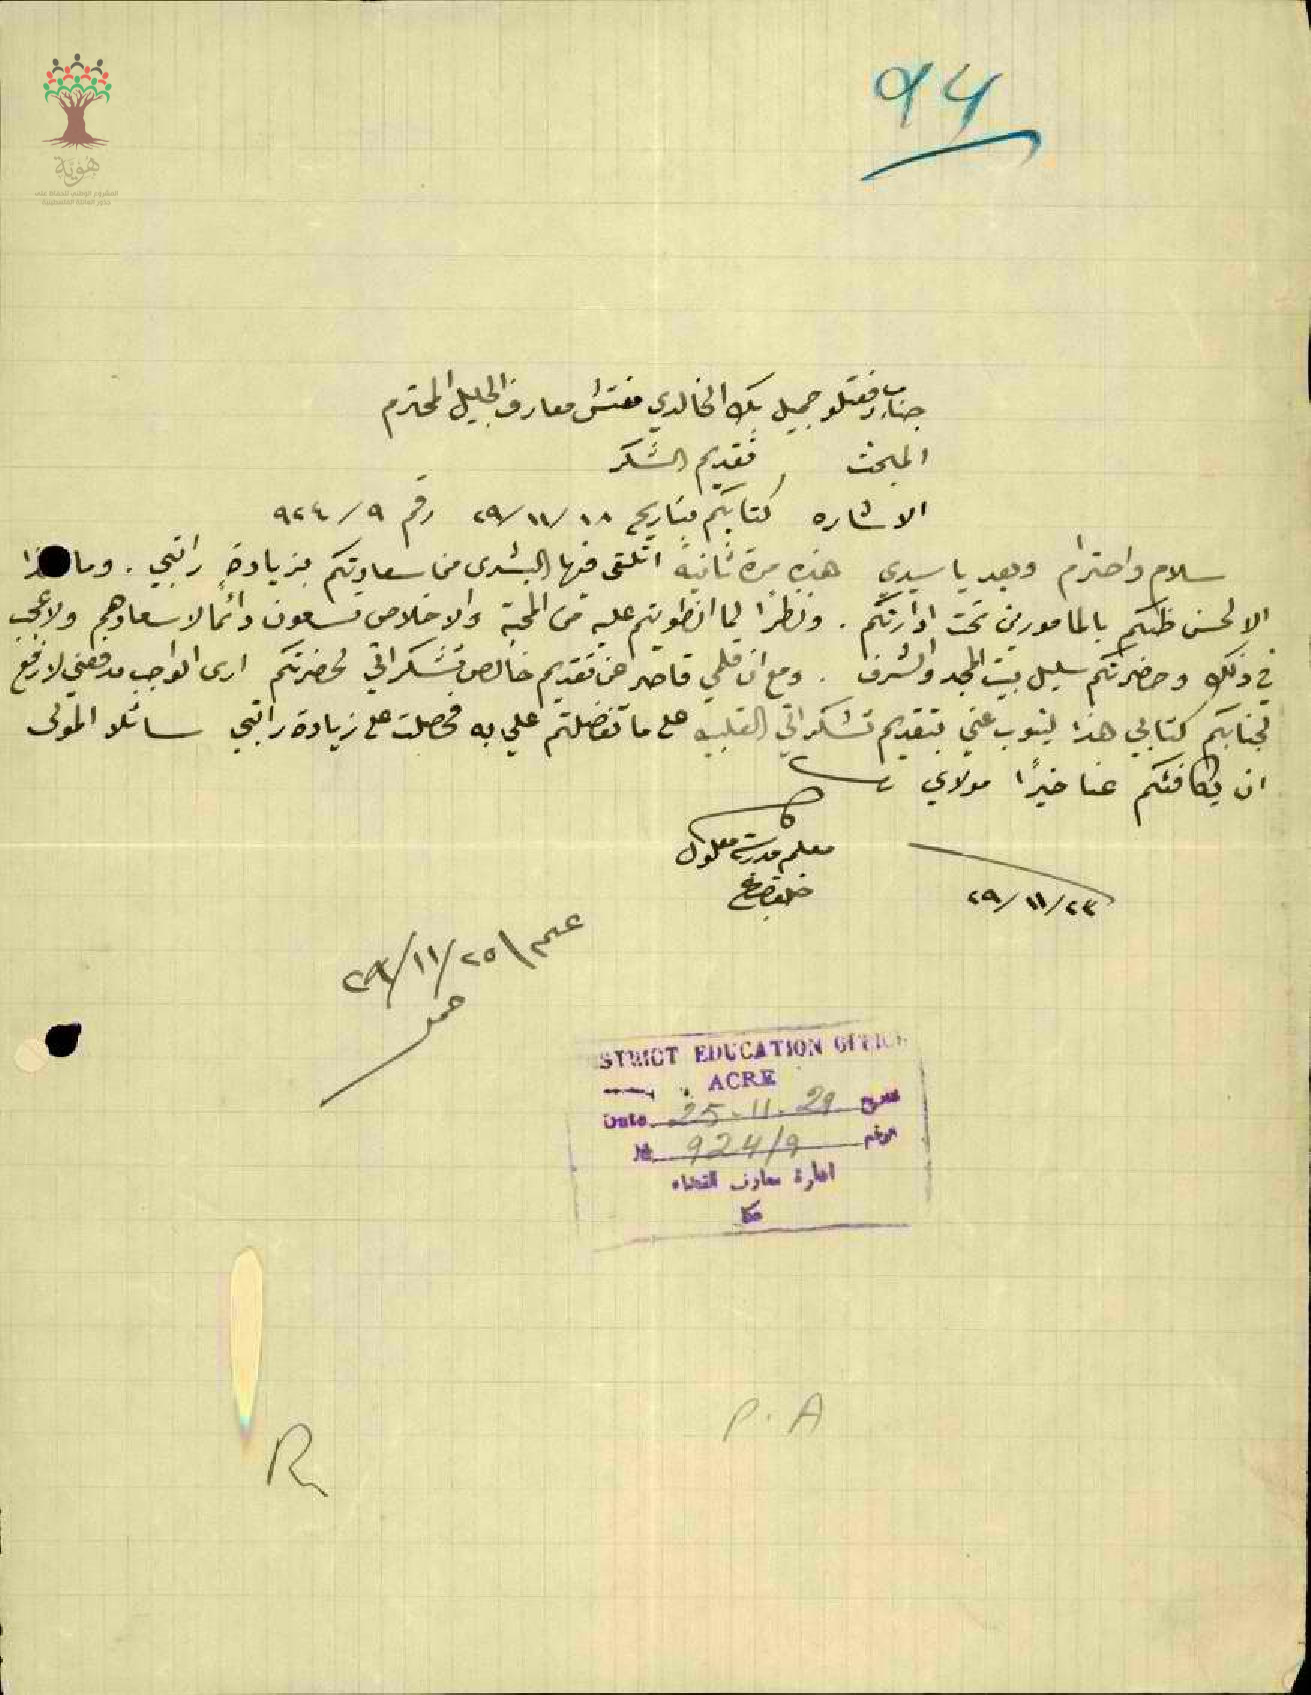 94
هوية
المشروع الوطني للحفاظ على
جذور العائلة الفلسطينية
جناب رفعتلو جميل بك الخالدي مفتش معارف الجليل المحترم
المبحث تقديم الشكر
الاشاره كتابكم بتاريخ ١٨/١١/٢٩ رقم ٩/٩٢٤
سلام واحترام وبعد يا سيدي هذه مرة ثانية اتلقى فيها البشرى من سعادتكم بزيادة راتبي . وما
الا لحسن ظنكم بالمامورين تحت ادارتكم . ونظرًا لما انطويتم عليه من المحبة والاخلاص تسعون دائمًا لاسعادهم ولا عجب
في ذلك وحضرتكم سليل بيت المجد والشرف . ومع ان قلمي قاصر عن تقديم خالص تشكراتي لحضرتكم ارى الواجب يدفعني لارفع
لجنابكم كتابي هذا لينوب عني بتقديم تشكراتي القلبيه على ما تفضلتم علي به فحصلت على زيادة راتبي سائلا المولى
ان يكافئكم عنا خيرًا مولاي
معلم مدرسة معلول
٢٣/١١/٢٩
٢٥/١١/٢٩
STRICT EDUCATION OFFICE
ACRE
Date 25-11-29
No 924/9 الرقم
ادارة معارف القضاء
عكا
P.A
R